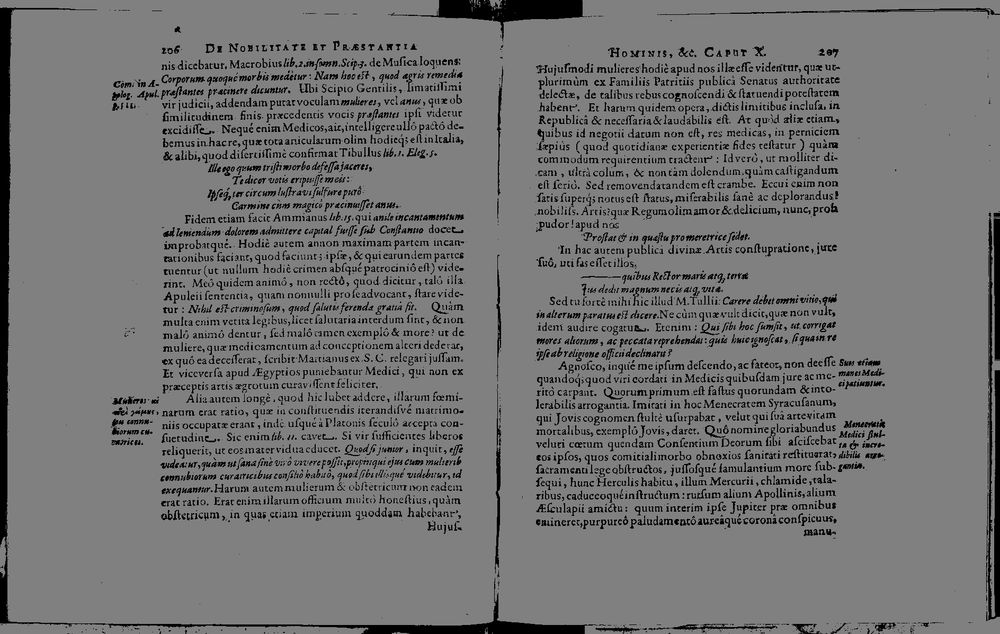 206 DE NOBILITATE ET PRÆSTANTIA
nis dicebatur. Macrobius lib. 2. in somn. Scip. 3. de Musica loquens:
Corporum quoque morbis medetur: Nam hoc est, quod ægris remedia
præstantes præcinere dicuntur. Ubi Scipio Gentilis, limatissimi
vir judicii, addendum putat voculam mulieres, vel anus, quæ ob
similitudinem finis præcedentis vocis præstantes ipsi videtur
excidisse. Neque enim Medicos, ait, intelligere ullo pacto de-
bemus in hac re, quæ tota anicularum olim hodieq; est in Italia,
& alibi, quod disertissime confirmat Tibullus lib. 1. Eleg. 5.
Ille ego quum tristi morbo defessa jaceres,
Te dicor votis eripuisse meis:
Ipseq; ter circum lustravi sulfure puro
Carmine cum magico præcinuisset anus.
Fidem etiam facit Ammianus lib. 15. qui anile incantamentum
ad leniendum dolorem admittere capital fuisse sub Constantio docet
improbatque. Hodie autem annon maximam partem incan-
tationibus faciant, quod faciunt; ipsæ, & qui earundem partes
tuentur (ut nullum hodie crimen absque patrocinio est) vide-
rint. Meo quidem animo, non recto, quod dicitur, talo illa
Apuleii sententia, quam nonnulli pro se advocant, stare vide-
tur: Nihil est criminosum, quod salutis ferenda gratia fit. Quam
multa enim vetita legibus, licet salutaria interdum sint, & non
malo animo dentur, sed malo tamen exemplo & more? ut de
muliere, quæ medicamentum ad conceptionem alteri dederat,
ex quo ea decesserat, scribit Martianus ex S. C. relegari jussam.
Et viceversa apud Ægyptios puniebantur Medici, qui non ex
præceptis artis ægrotum curavissent feliciter.
Alia autem longe, quod hic lubet addere, illarum fœmi-
narum erat ratio, quæ in constituendis iterandisve matrimo-
niis occupatæ erant, inde usque à Platonis seculo accepta con-
suetudine. Sic enim lib. 11. cavet. Si vir sufficientes liberos
reliquerit, ut eos mater vidua educet. Quodsi junior, inquit, esse
videatur, quàm ut sana sine viro vivere possit, propinqui ejus cum mulierib
connubiorum curatricibus consilio habito, quod sibi illisque videbitur, id
exequantur. Harum autem mulierum & obstetricum non eadem
erat ratio. Erat enim illarum officium multò honestius, quàm
obstetricum, in quas etiam imperium quoddam habebant,
Hujus-
Com. in A-
polog. Apul.
Mulieres
connu-
biorum cu-
ratrices.
HOMINIS, &c. CAPUT X. 207
Hujusmodi mulieres hodie apud nos illæ esse videntur, quæ ut-
plurimum ex Familiis Patritiis publica Senatus authoritate
delectæ, de talibus rebus cognoscendi & statuendi potestatem
habent. Et harum quidem opera, dictis limitibus inclusa, in
Republica & necessaria & laudabilis est. At quod aliæ etiam,
quibus id negotii datum non est, res medicas, in perniciem
sæpius (quod quotidianæ experientiæ fides testatur) quàm
commodum requirentium tractent: Id vero, ut molliter di-
cam, ultra colum, & non tàm dolendum, quàm castigandum
est serio. Sed removenda tandem est crambe. Eccui enim non
satis superq; notus est status, miserabilis sane ac deplorandus?
nobiliss. Artis? quæ Regum olim amor & delicium, nunc, proh
pudor! apud nos
Prostat & in quæstu pro meretrice sedet.
In hac autem publica divinæ Artis constupratione, jure
suo, uti fas esset illos,
quibus Rector maris atq; terræ
Jus dedit magnum necis atq; vitæ.
Sed tu forte mihi hic illud M. Tullii: Carere debet omni vitio, qui
in alterum paratus est dicere. Ne cùm quæ vult dicit, quæ non vult,
idem audire cogatur. Etenim: Qui sibi hoc sumsit, ut corrigat
mores aliorum, ac peccata reprehendat: quis huic ignoscat, si qua in re
ipse ab religione officii declinarit?
Agnosco, inque me ipsum descendo, ac fateor, non deesse
quandoq; quod viri cordati in Medicis quibusdam jure ac me-
rito carpant. Quorum primum est fastus quorundam & into-
lerabilis arrogantia. Imitati in hoc Menecratem Syracusanum,
qui Jovis cognomen stulte usurpabat, velut qui suâ arte vitam
mortalibus, exemplo Jovis, daret. Quo nomine gloriabundus
veluti cœtum quendam Consentium Deorum sibi asciscebat
eos ipsos, quos comitiali morbo obnoxios sanitati restituerat,
sacramenti lege obstrictos, jussosque famulantium more sub-
sequi, hunc Herculis habitu, illum Mercurii, chlamide, tala-
ribus, caduceoque instructum: rursum alium Apollinis, alium
Æsculapii amictu: quum interim ipse Jupiter præ omnibus
emineret, purpureo paludamento aureâque corona conspicuus,
manu-
Sunt etiam
Medi-
Menecratis
Medici stul-
ta & incre-
dibilis arro-
gantia.